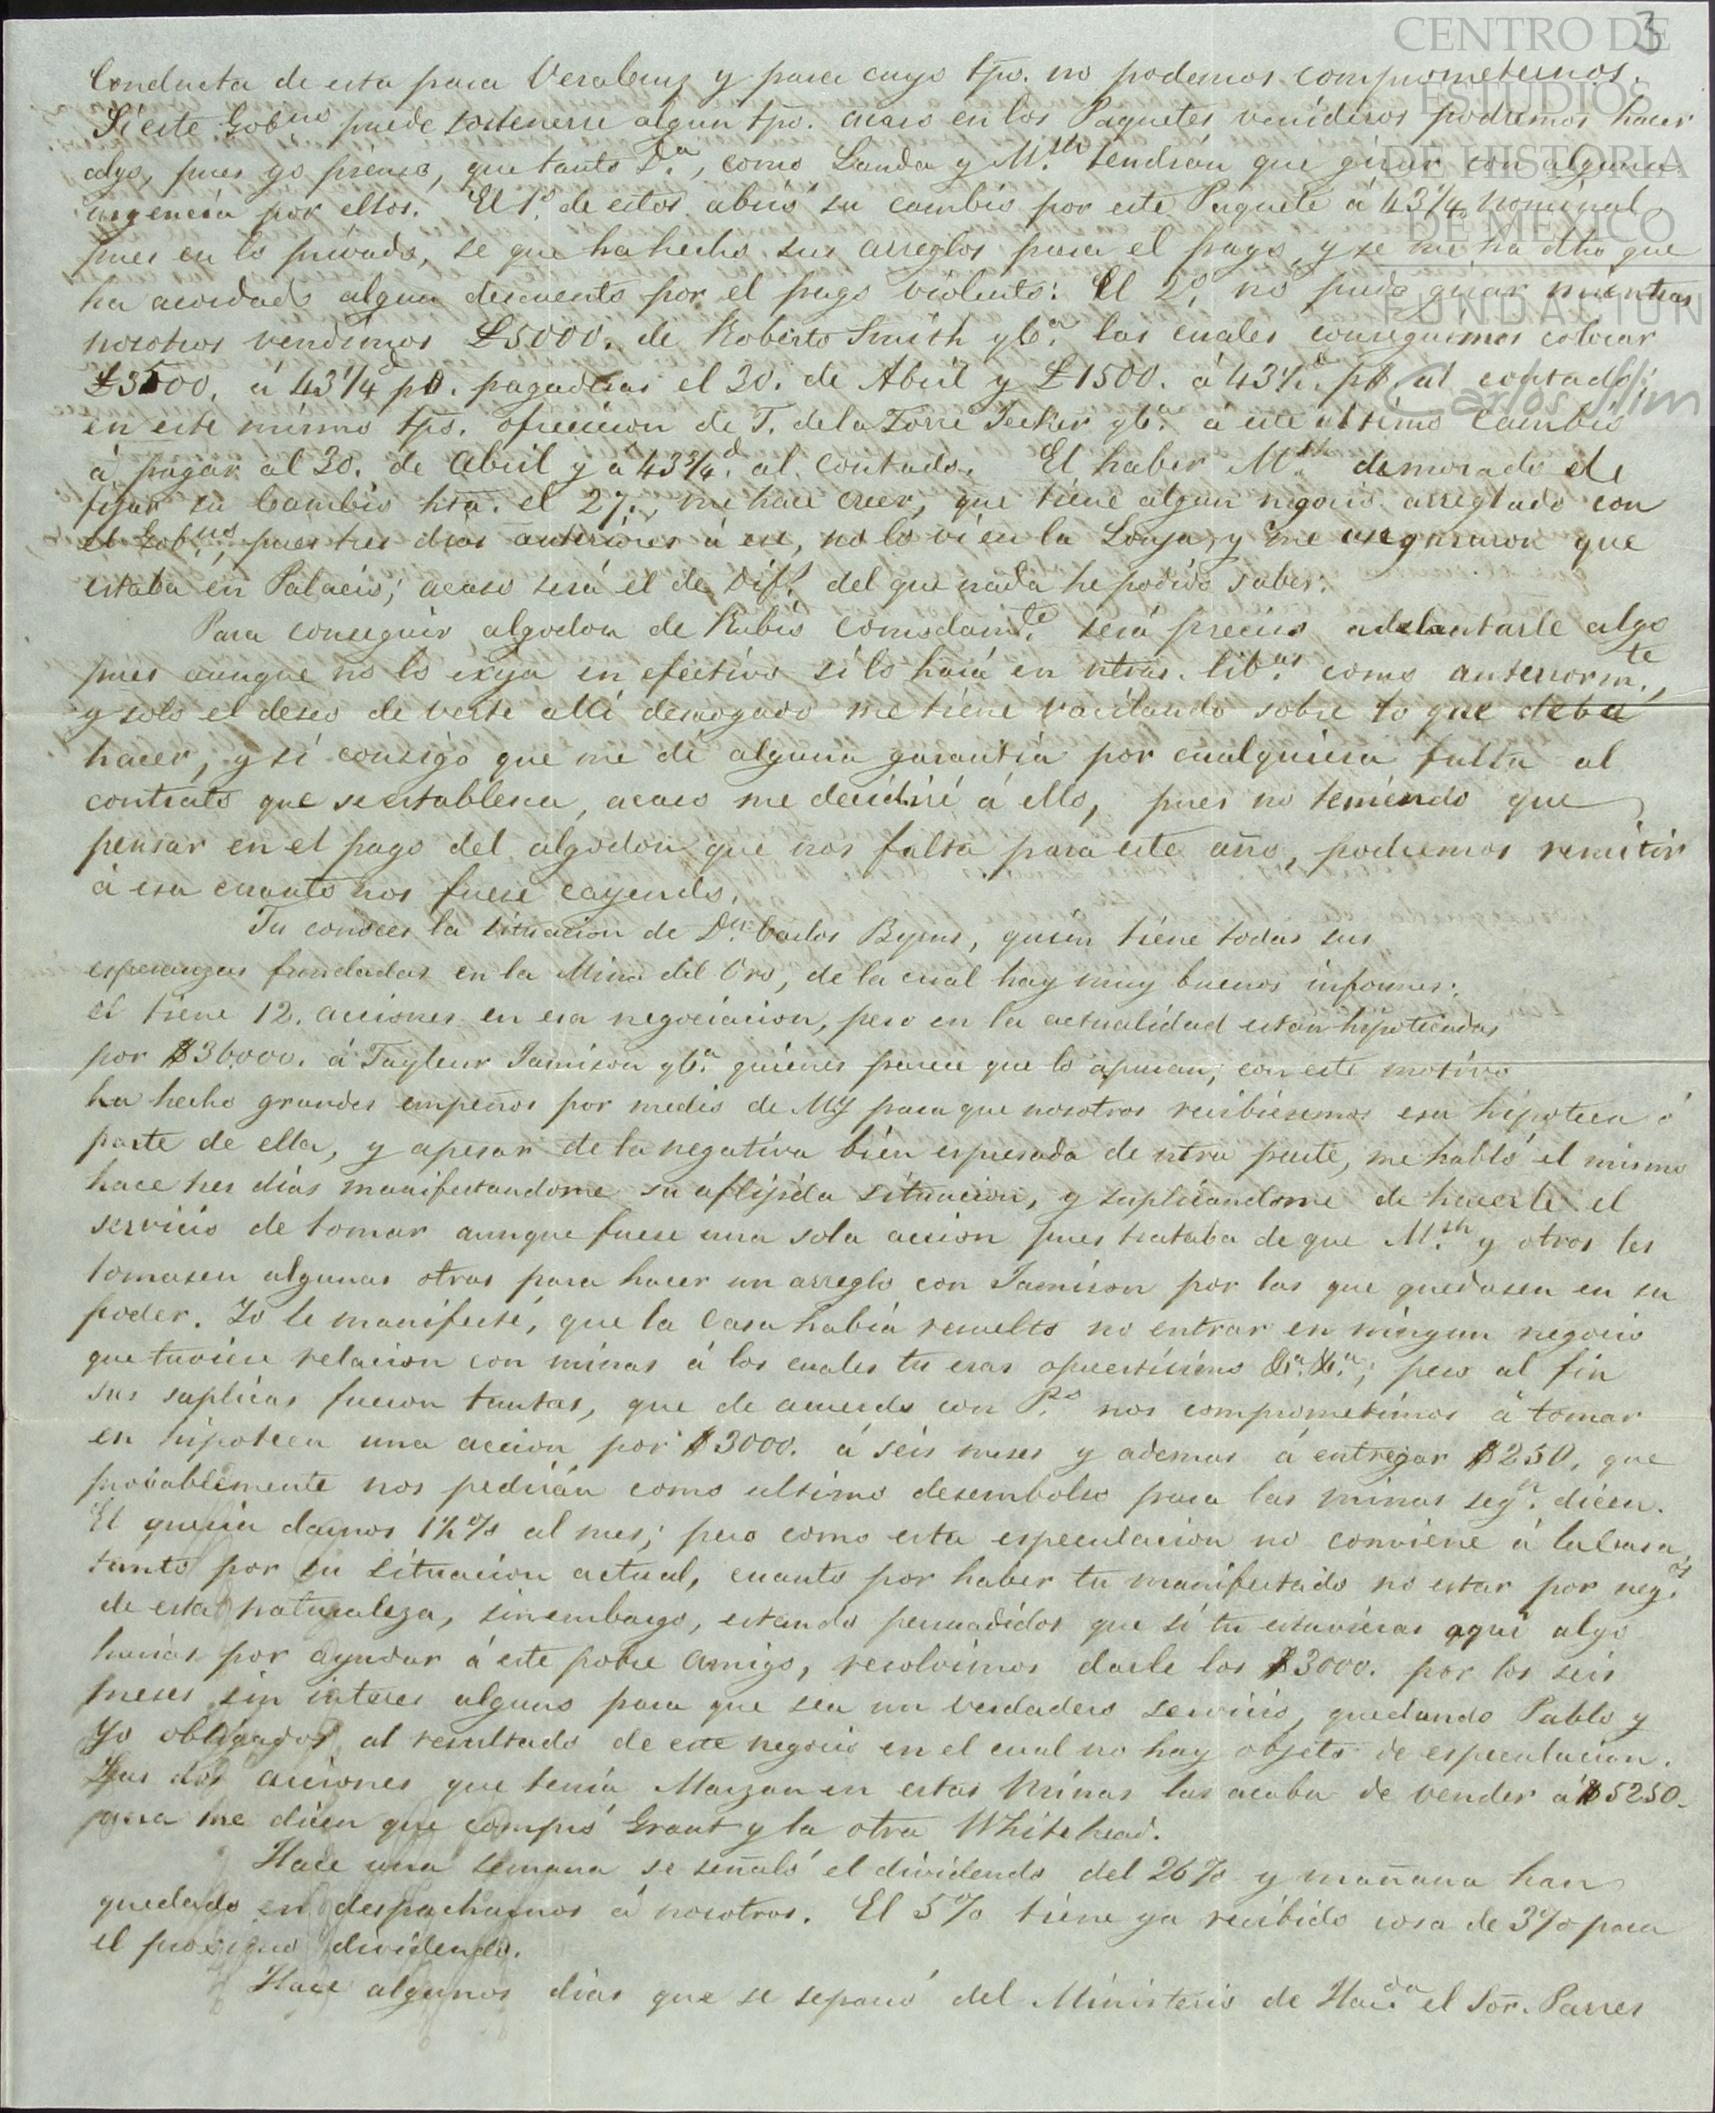 3
CENTRO DE
ESTUDIOS
DE HISTORIA
DE MEXICO
FUNDACION
Carlos Slim
Conducta de esta para Veracruz y para cuyo tpo. no podemos comprometernos.
Si este Gobno puede sostenerse algun tpo. acaso en los Paquetes venideros podremos hacer
algo, pues yo pienso, que tanto D.a, como Landa y M.sh tendrán que girar con alguna
urgencia por ellos. El 1.o de estos abrió su cambio por este Paquete á 43 1/4 nominal,
pues en lo privado, se que ha hecho sus arreglos para el pago, y se me ha dho que
ha acordado algun descuento por el pago violento: El 2.o no pudo girar mientras
nosotros vendimos £5000. de Roberto Smith y C.a las cuales conseguimos colocar
£3500. á 43 1/4 d p$. pagaderas el 30. de Abril y £1500. á 43 1/2 d p$. al contado;
en este mismo tpo. ofrecieron de T. de la Torre Jecker y C.a á este ultimo Cambio
á pagar al 30. de Abril y á 43 3/4 d. al contado. El haber M.sh demorado el
fijar su Cambio hta. el 27., me hace creer, que tiene algun negocio arreglado con
el Gob.no, pues tres dias anteriores á ese, no lo ví en la Lonja, y me aseguraron que
estaba en Palacio; acaso será el de Dif.s del que nada he podido saber.
Para conseguir algodon de Rubio comodam.te será preciso adelantarle algo
pues aunque no lo exija en efectivo si lo hará en ntras. lib.as como anteriorm.te,
y solo el deseo de verte allí desaogado me tiene vacilando sobre lo que deba
hacer, y si consigo que me dé alguna garantía por cualquiera falta al
contrato que se establesca, acaso me decidiré á ello, pues no teniendo que
pensar en el pago del algodon que nos falta para este año, podremos remitir
á esa cuanto nos fuese cayendo.
Tu conoces la situacion de D.n Carlos Byrns, quien tiene todas sus
esperanzas fundadas en la Mina del Oro, de la cual hay muy buenos informes;
el tiene 12. acciones en esa negociacion, pero en la actualidad estan hipotecadas
por $36000. á Tayleur Jamison y C.a quienes parece que lo apuran; con este motivo
ha hecho grandes empeños por medio de MyJ para que nosotros recibiesemos esa hipoteca ó
parte de ella, y apesar de la negativa bien espresada de ntra parte, me habló el mismo
hace tres dias manifestandome su aflijida situacion, y suplicandome de hacerle el
servicio de tomar aunque fuese una sola accion pues trataba de que M.sh y otros les
tomasen algunas otras para hacer un arreglo con Jamison por las que quedasen en su
poder. Yo le manifesté, que la Casa habia resuelto no entrar en ningun negocio
que tuviese relacion con minas á los cuales tu eras opuestisimo &.a &.a; pero al fin
sus suplicas fueron tantas, que de acuerdo con P.o nos comprometimos á tomar
en hipoteca una accion por $3000. á seis meses y ademas á entregar $250, que
provablemente nos pedirán como ultimo desembolso para las minas seg.n dicen.
El queria darnos 1 1/2 % al mes; pero como esta especulacion no conviene á la Casa,
tanto por su situacion actual, cuanto por haber tu manifestado no estar por neg.os
de esta naturaleza, sin embargo, estando persuadidos que si tu estuvieras aqui algo
harias por ayudar á este pobre amigo, resolvimos darle los $3000. por los seis
meses sin interes alguno para que sea un verdadero servicio, quedando Pablo y
Yo obligados al resultado de este negocio en el cual no hay objeto de especulacion.
Las dos acciones que tenia Marzan en estas Minas las acaba de vender á $5250.
una me dicen que compró Grant y la otra Whitehead.
Hace una semana se señaló el dividendo del 26% y mañana han
quedado en despacharnos á nosotros. El 5% tiene ya recibido cosa de 3% para
el proximo dividendo.
Hace algunos dias que se separó del Ministerio de Hac.da el Sor. Parres